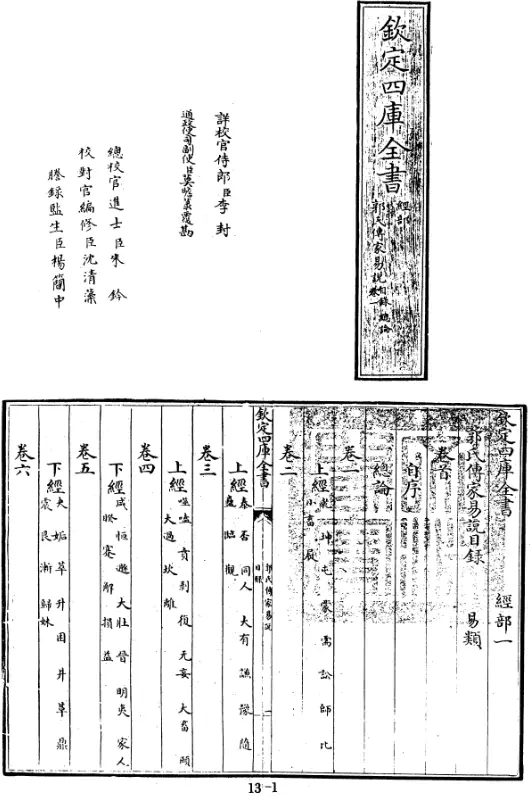 欽定四庫全書
經部
郭氏傳家易說 目錄 總論
卷一
詳校官侍郎臣李封
通政使司副使臣莫瞻菉覆勘
總校官進士臣朱鈐
校對官編修臣沈清藻
謄錄監生臣楊簡中
欽定四庫全書 經部一
郭氏傳家易說目錄 易類
卷首
自序
總論
卷一
上經 乾 坤 屯 蒙 需 訟 師 比
小畜 履
卷二
欽定四庫全書
郭氏傳家易說
目錄
一
上經 泰 否 同人 大有 謙 豫 隨
蠱 臨 觀
卷三
上經 噬嗑 賁 剝 復 无妄 大畜 頤
大過 坎 離
卷四
下經 咸 恒 遯 大壯 晉 明夷 家人
睽 蹇 解 損 益
卷五
下經 夬 姤 萃 升 困 井 革 鼎
震 艮 漸 歸妹
卷六
13-1